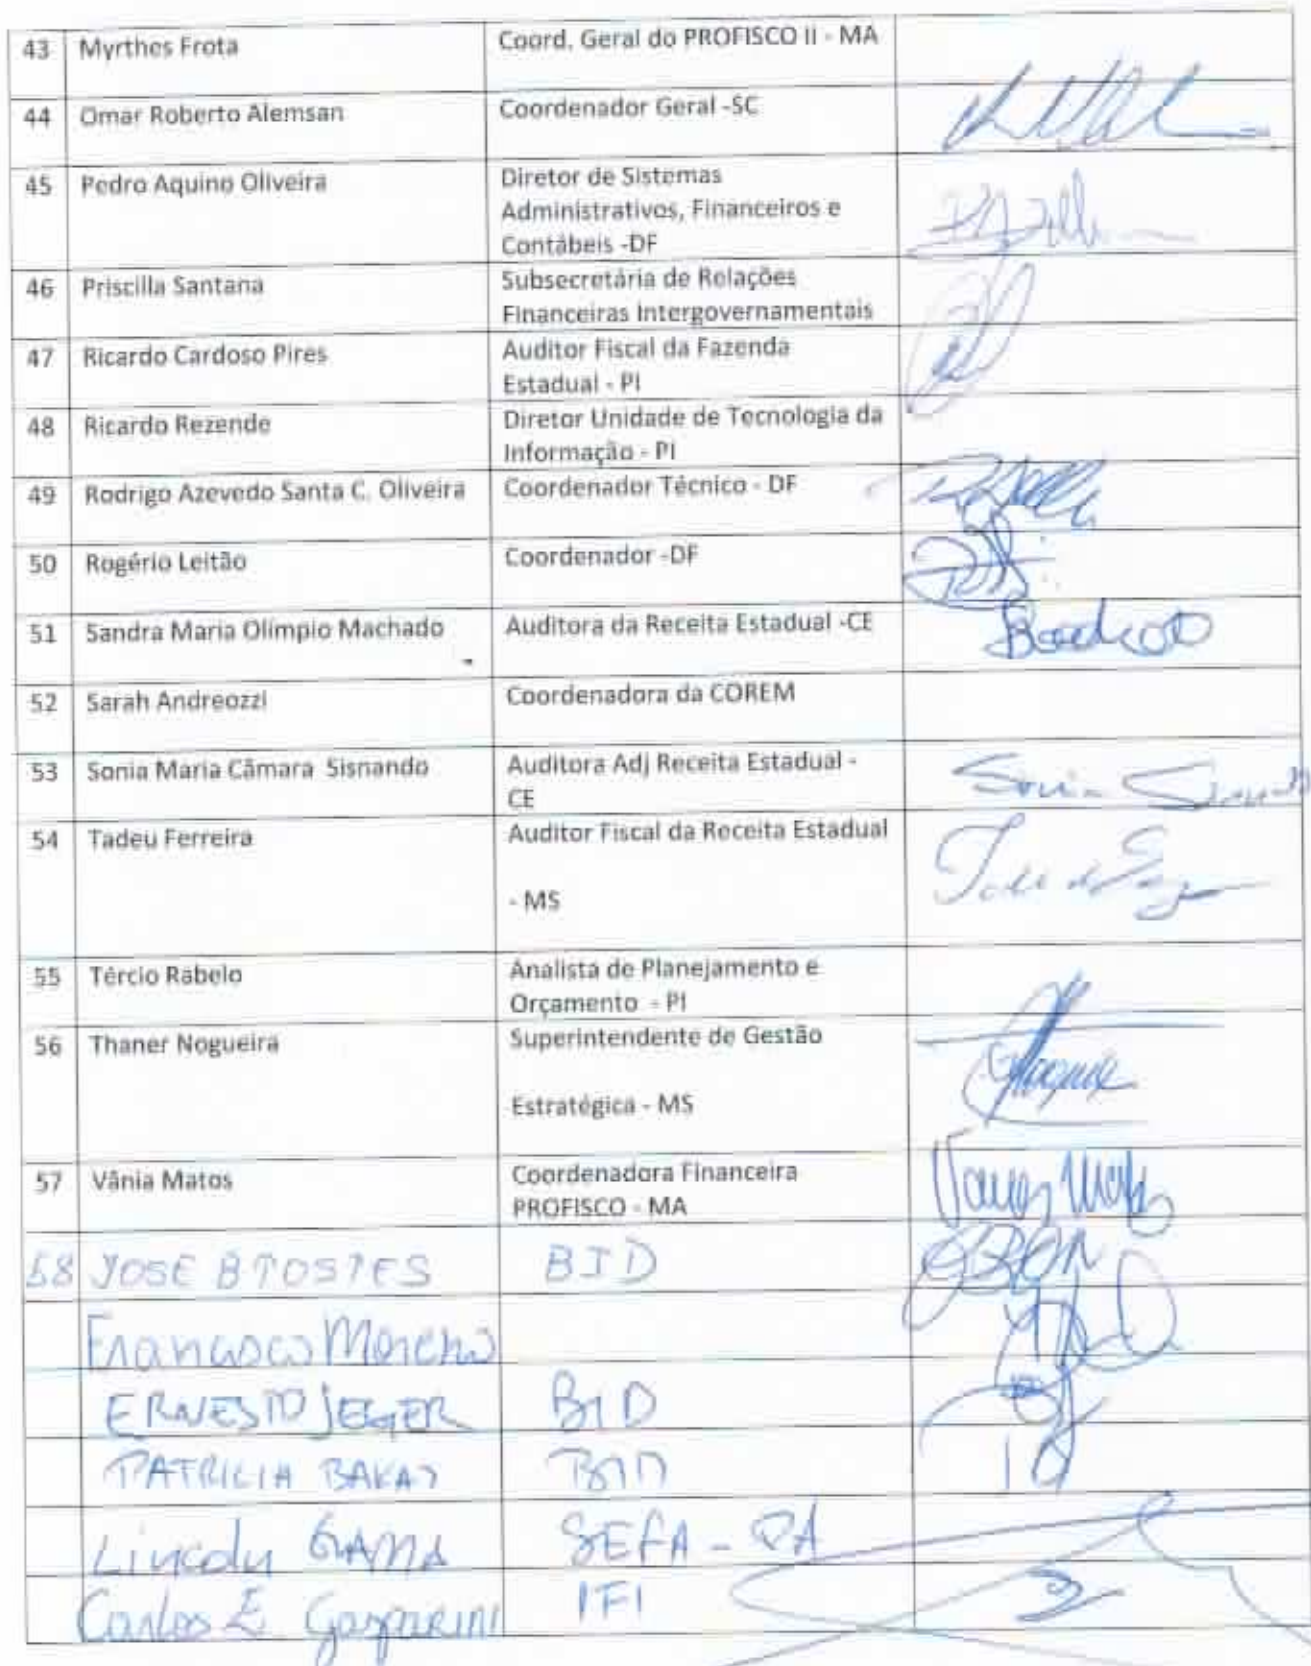 43 Myrthes Frota Coord. Geral do PROFISCO II - MA
44 Omar Roberto Alemsan Coordenador Geral -SC
45 Pedro Aquino Oliveira Diretor de Sistemas
Administrativos, Financeiros e
Contábeis -DF
46 Priscilla Santana Subsecretária de Relações
Financeiras Intergovernamentais
47 Ricardo Cardoso Pires Auditor Fiscal da Fazenda
Estadual - PI
48 Ricardo Rezende Diretor Unidade de Tecnologia da
Informação - PI
49 Rodrigo Azevedo Santa C. Oliveira Coordenador Técnico - DF
50 Rogério Leitão Coordenador -DF
51 Sandra Maria Olímpio Machado Auditora da Receita Estadual -CE
52 Sarah Andreozzi Coordenadora da COREM
53 Sonia Maria Câmara Sisnando Auditora Adj Receita Estadual -
CE
54 Tadeu Ferreira Auditor Fiscal da Receita Estadual
- MS
55 Tércio Rabelo Analista de Planejamento e
Orçamento - PI
56 Thaner Nogueira Superintendente de Gestão
Estratégica - MS
57 Vânia Matos Coordenadora Financeira
PROFISCO - MA
58 JOSE B TOSTES BID
Francisco Moreno
ERNESTO JEGER BID
PATRICIA BAKAJ BID
Lincoln GAMA SEFA - PA
Carlos E Gasparini IFI